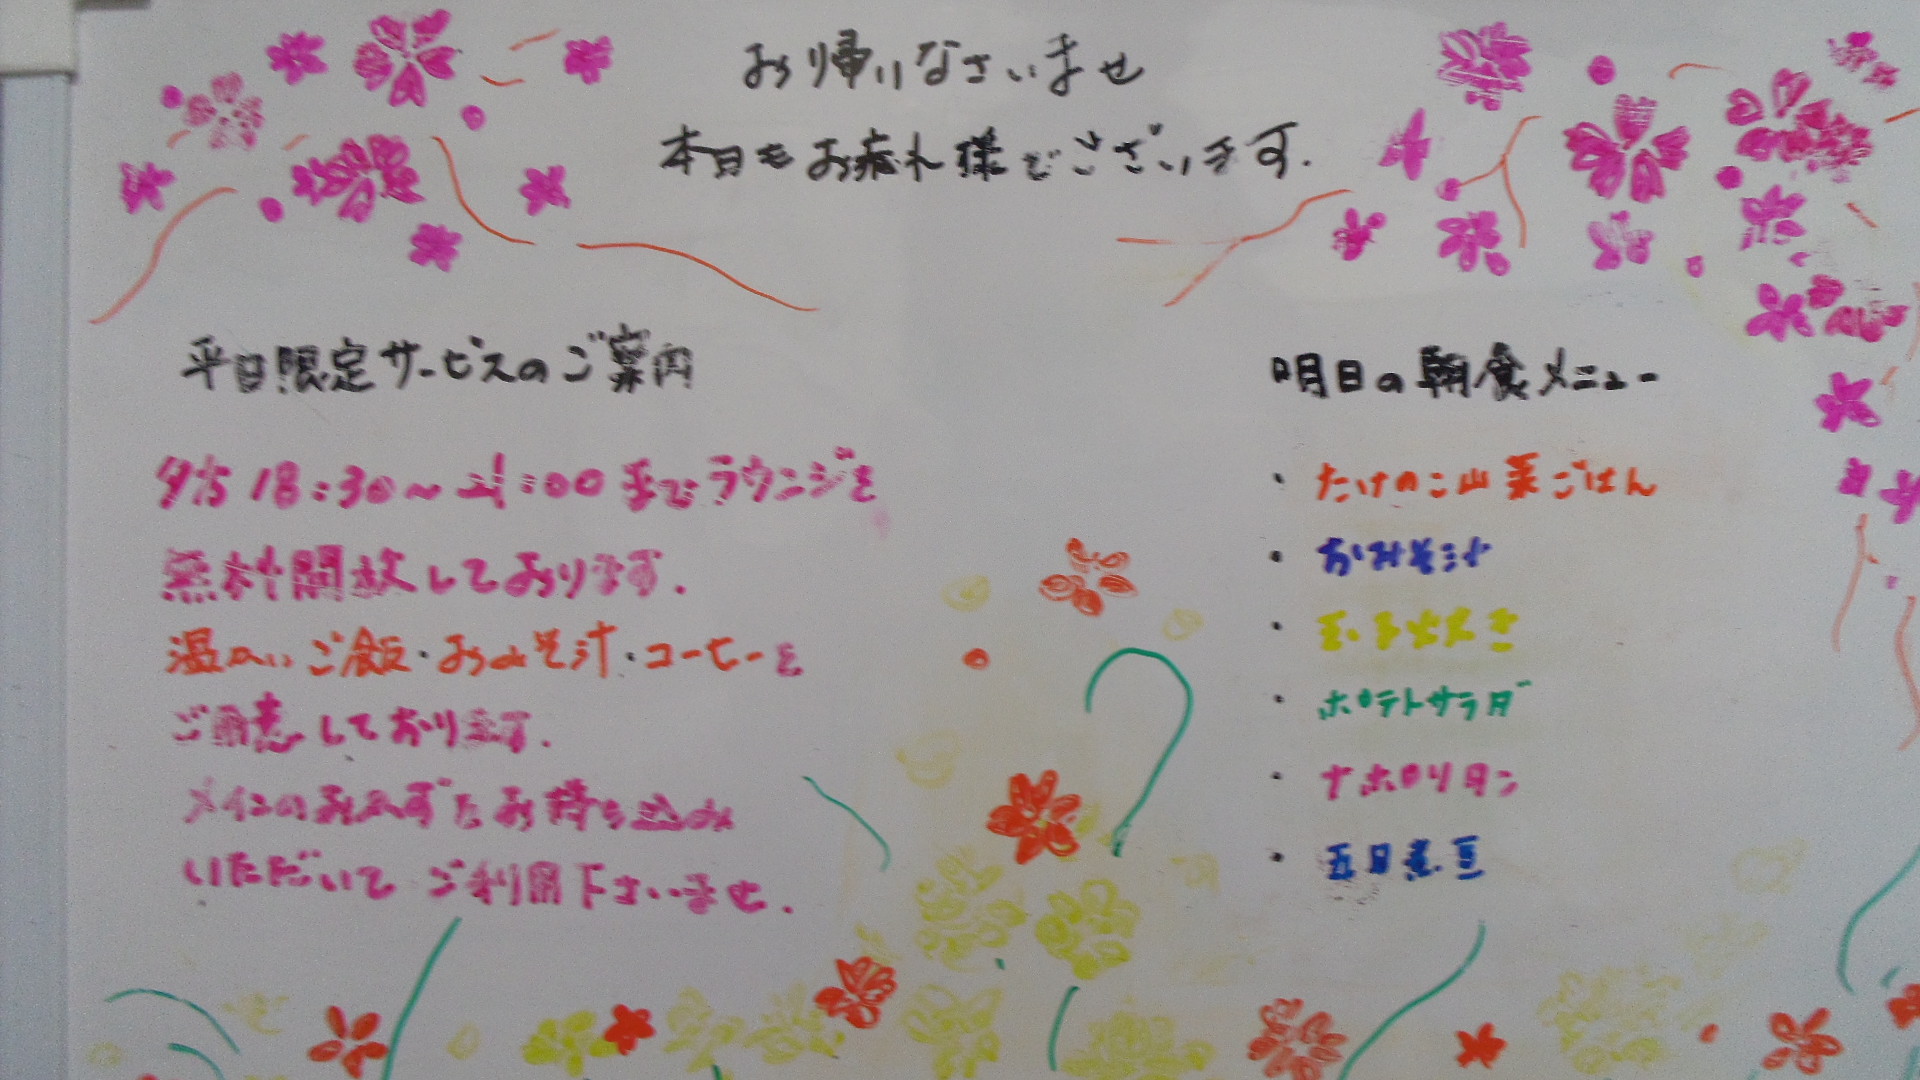 お帰りなさいませ
本日もお疲れ様でございます.
平日限定サービスのご案内
夕方 18:30～21:00までラウンジを
無料開放しております.
温かいご飯・おみそ汁・コーヒーを
ご用意しております.
メインのおかずをお持ち込み
いただいてご利用下さいませ.
明日の朝食メニュー
・たけのこ山菜ごはん
・おみそ汁
・玉子焼き
・ポテトサラダ
・ナポリタン
・五目煮豆